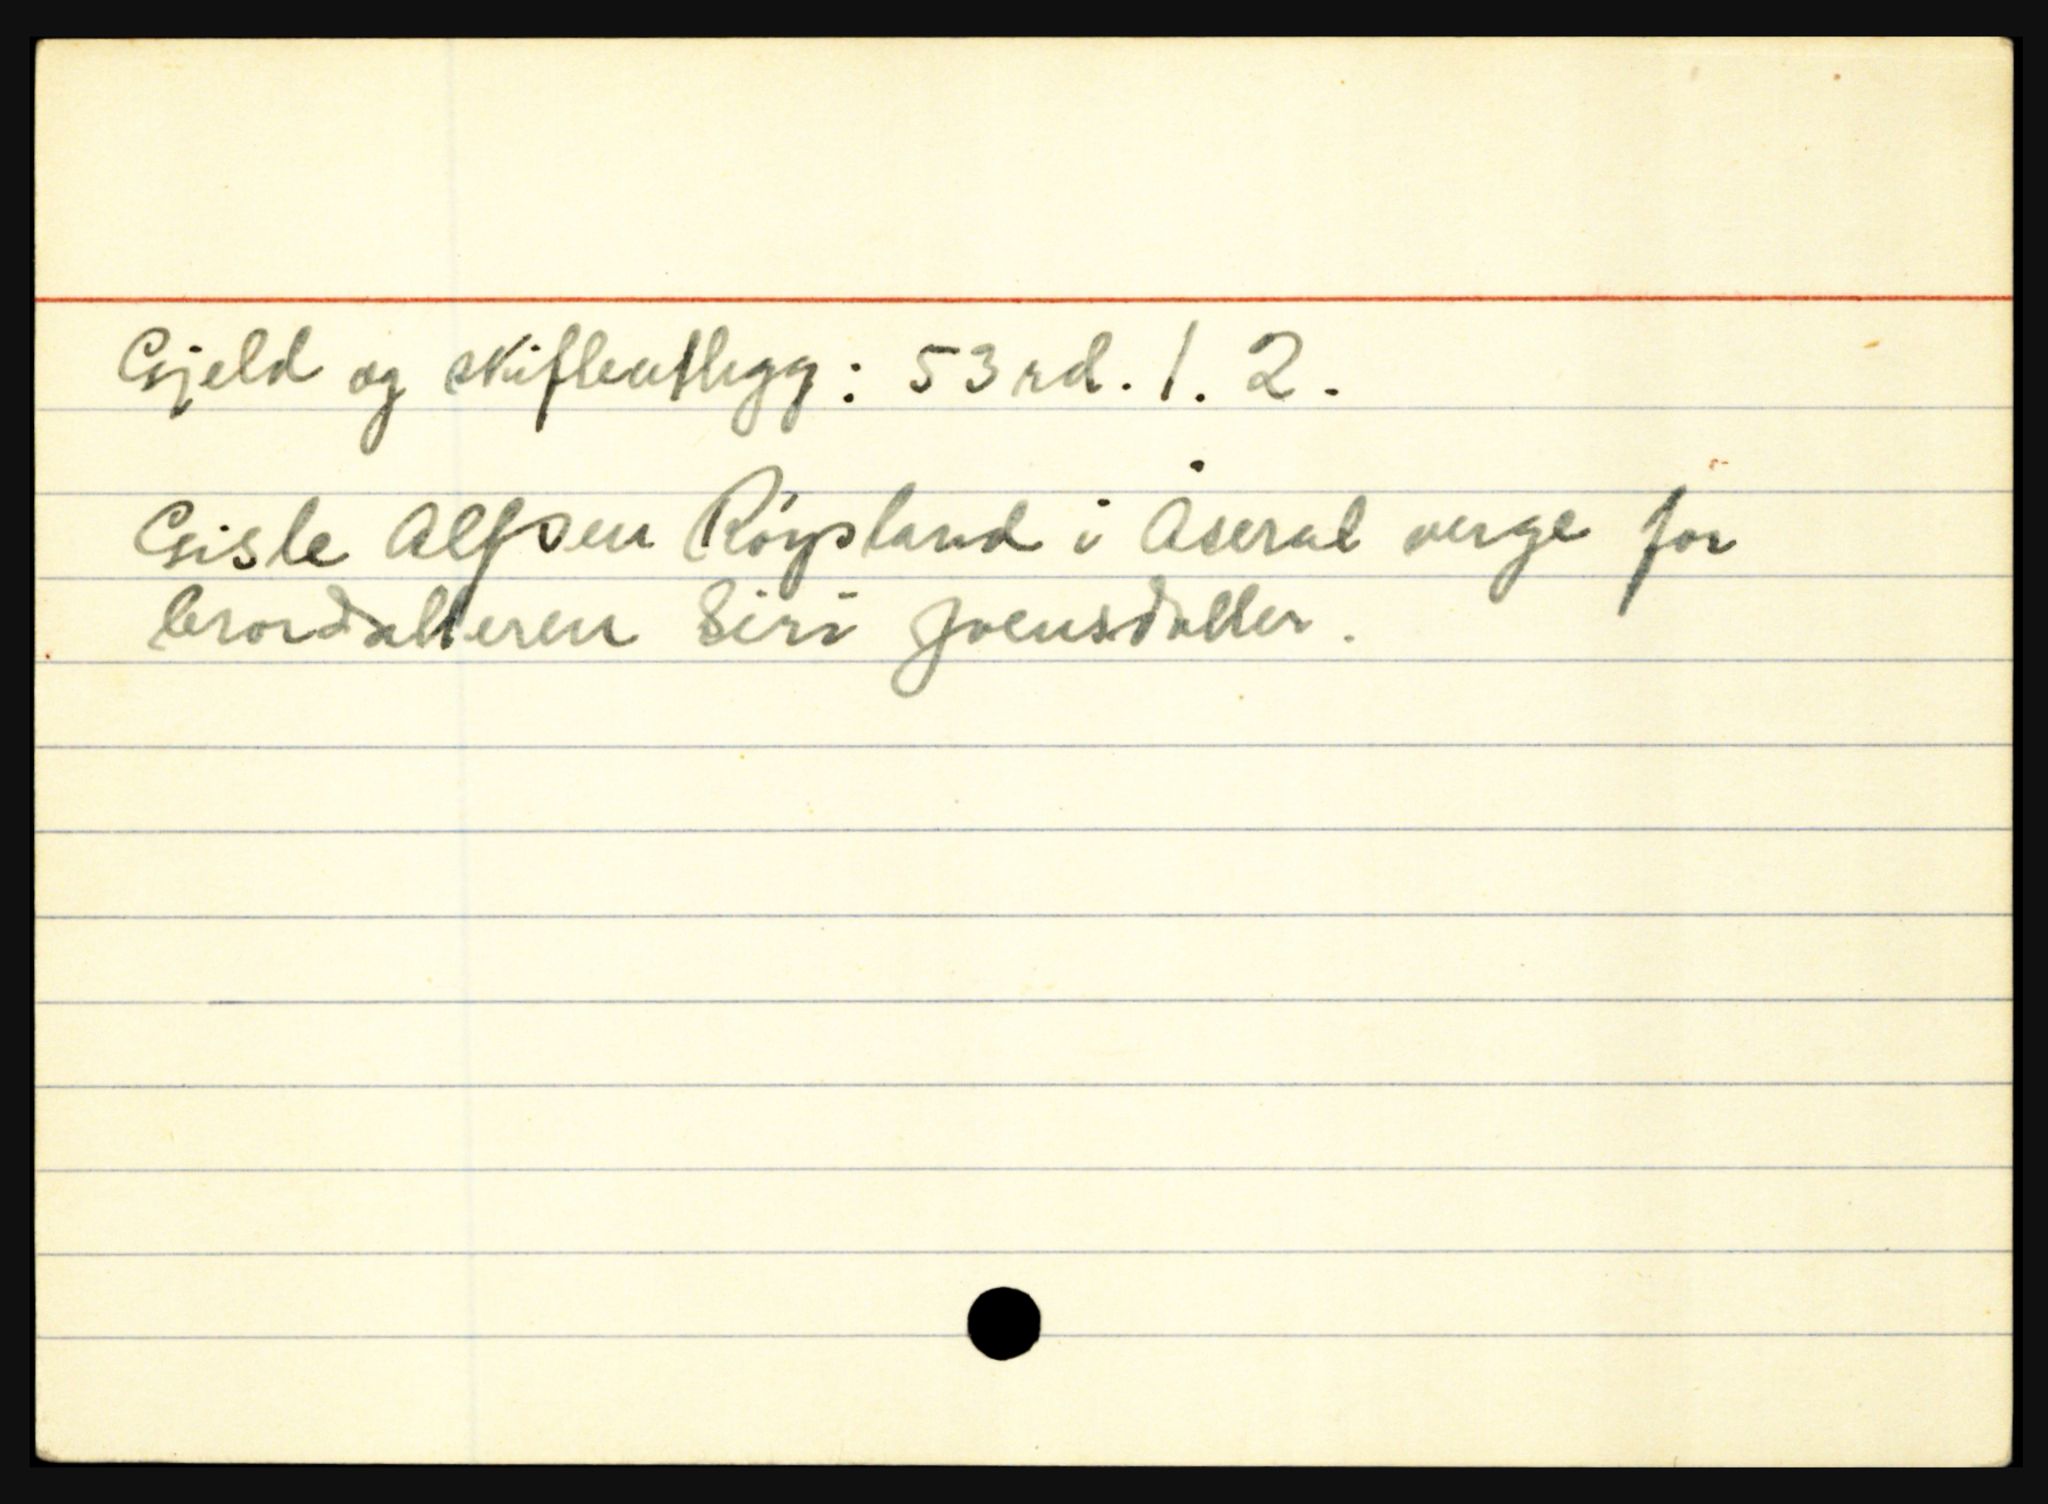 Gjeld og skifteutlegg: 53 rd. 1. 2.
Gisle Alfsen Røysland i Åseral verge for
brordatteren Siri Joensdatter.